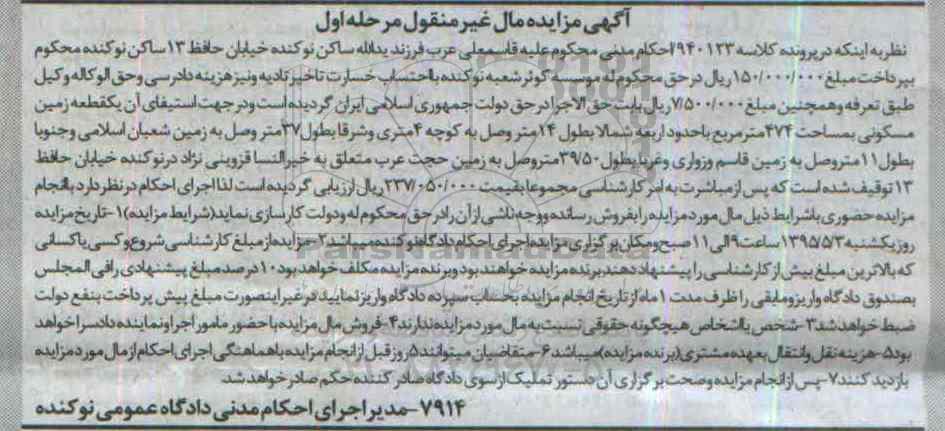 آگهی مزایده مال غیر منقول مرحله اول
نظر به اینکه در پرونده کلاسه ۹۴۰۱۲۳/احکام مدنی محکوم علیه قاسمعلی عرب فرزند یداله ساکن نوکنده خیابان حافظ ۱۳ ساکن نوکنده محکوم
بپرداخت مبلغ ۱۵۰/۰۰۰/۰۰۰ ریال در حق محکوم له موسسه کوثر شعبه نوکنده بااحتساب خسارت تاخیر تادیه و نیز هزینه دادرسی وحق الوکاله وکیل
طبق تعرفه وهمچنین مبلغ ۷/۵۰۰/۰۰۰ ریال بابت حق الاجرا در حق دولت جمهوری اسلامی ایران گردیده است ودر جهت استیفای آن یکقطعه زمین
مسکونی بمساحت ۴۷۴ متر مربع باحدود اربعه شمالا بطول ۱۴ متر وصل به کوچه ۴ متری وشرقا بطول ۳۷ متر وصل به زمین شعبان اسلامی وجنوبا
بطول ۱۱ متر وصل به زمین قاسم وزواری وغربا بطول ۳۹/۵۰ متر وصل به زمین حجت عرب متعلق به خیرالنسا قزوینی نژاد در نوکنده خیابان حافظ
۱۳ توقیف شده است که پس از مباشرت به امر کارشناسی مجموعا بقیمت ۲۳۷/۰۵۰/۰۰۰ ریال ارزیابی گردیده است لذا اجرای احکام در نظر دارد باانجام
مزایده حضوری باشرایط ذیل مال مورد مزایده را بفروش رسانده ووجه ناشی از آن را در حق محکوم له ودولت کارسازی نماید(شرایط مزایده)۱-تاریخ مزایده
روز یکشنبه ۱۳۹۵/۵/۳ ساعت ۹ الی ۱۱ صبح ومکان برگزاری مزایده اجرای احکام دادگاه نوکنده میباشد ۲-مزایده از مبلغ کارشناسی شروع وکسی یا کسانی
که بالاترین مبلغ بیش از کارشناسی را پیشنهاد دهند برنده مزایده خواهند بود وبرنده مزایده مکلف خواهد بود ۱۰ درصد مبلغ پیشنهادی را فی المجلس
بصندوق دادگاه واریز ومابقی را ظرف مدت ۱ ماه از تاریخ انجام مزایده بحساب سپرده دادگاه واریز نمایید در غیر اینصورت مبلغ پیش پرداخت بنفع دولت
ضبط خواهد شد ۳-شخص یا اشخاص هیچگونه حقوقی نسبت به مال مورد مزایده ندارند ۴-فروش مال مزایده با حضور مامور اجرا ونماینده دادسرا خواهد
بود ۵-هزینه نقل وانتقال بعهده مشتری(برنده مزایده)میباشد ۶-متقاضیان میتوانند ۵ روز قبل از انجام مزایده باهماهنگی اجرای احکام از مال مورد مزایده
بازدید کنند ۷-پس از انجام مزایده وصحت برگزاری آن دستور تملیک از سوی دادگاه صادر کننده حکم صادر خواهد شد.
۷۹۱۴-مدیر اجرای احکام مدنی دادگاه عمومی نوکنده
ParsNamadData